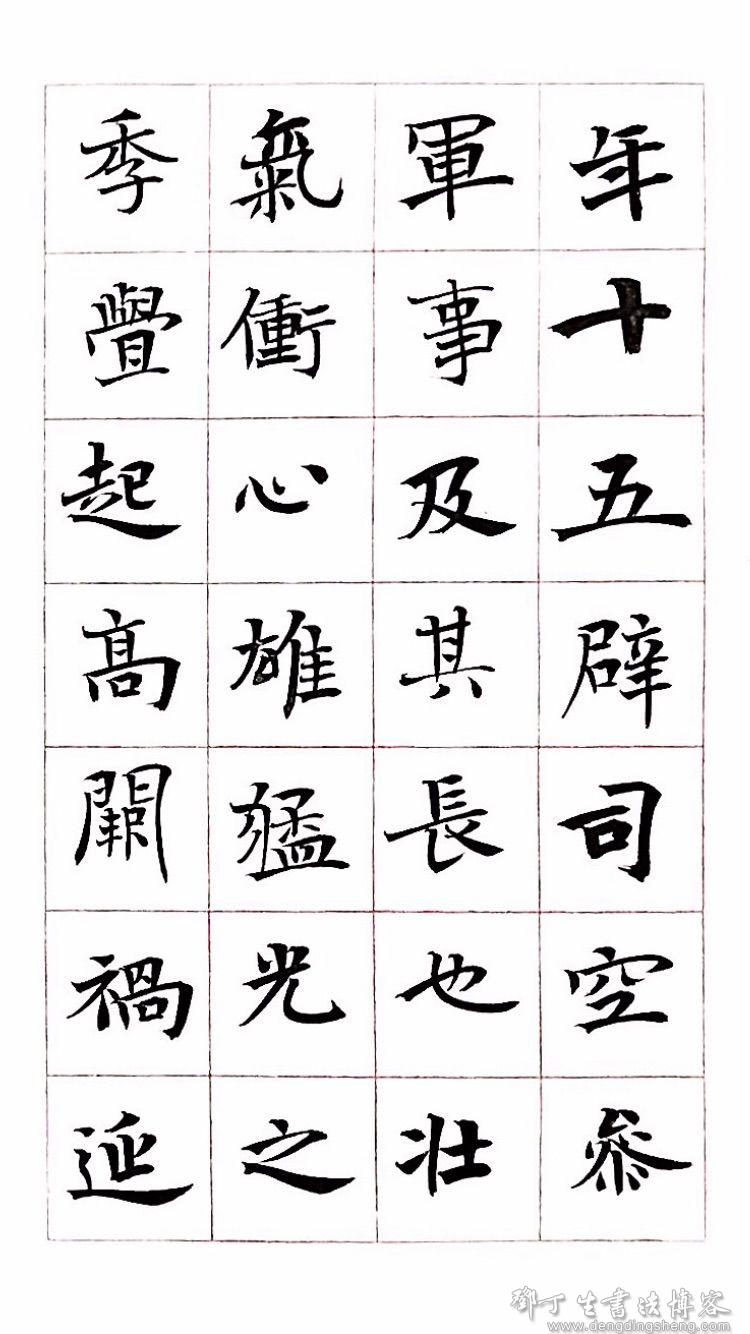 年十五辟司空參
軍事及其長也壯
氣衝心雄猛光之
季舋起高闕禍延
鄧丁生書法博客
www.dengdingsheng.com